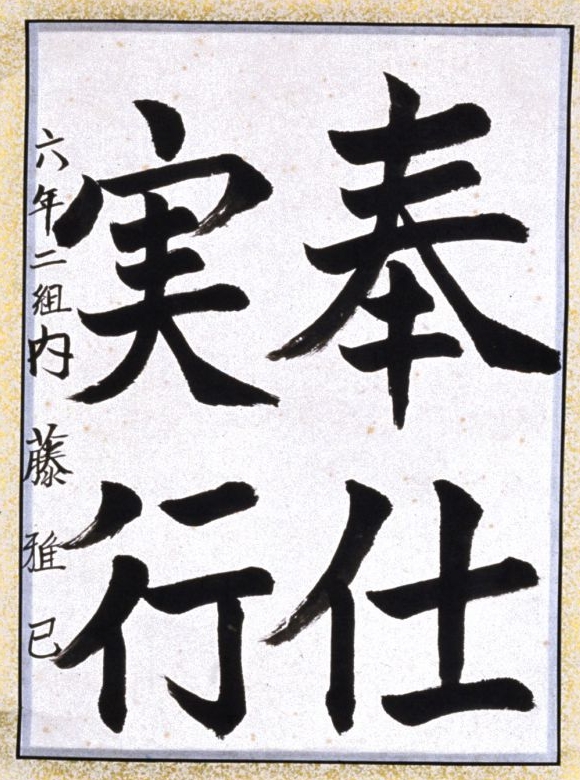 奉仕
実行
六年二組内藤雅己